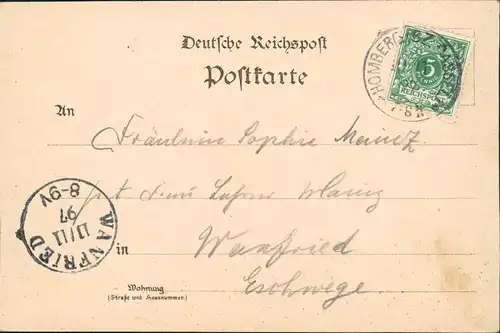 Deutsche Reichspost
Postkarte
HOMBERG BZ. KASSEL
7-8 N
5
REICHSPOST
An
Fräulein Sophie Mainz
in
Wanfried
Eschwege.
WANFRIED
11/11
97
8-9V
Wohnung
(Straße und Hausnummer)